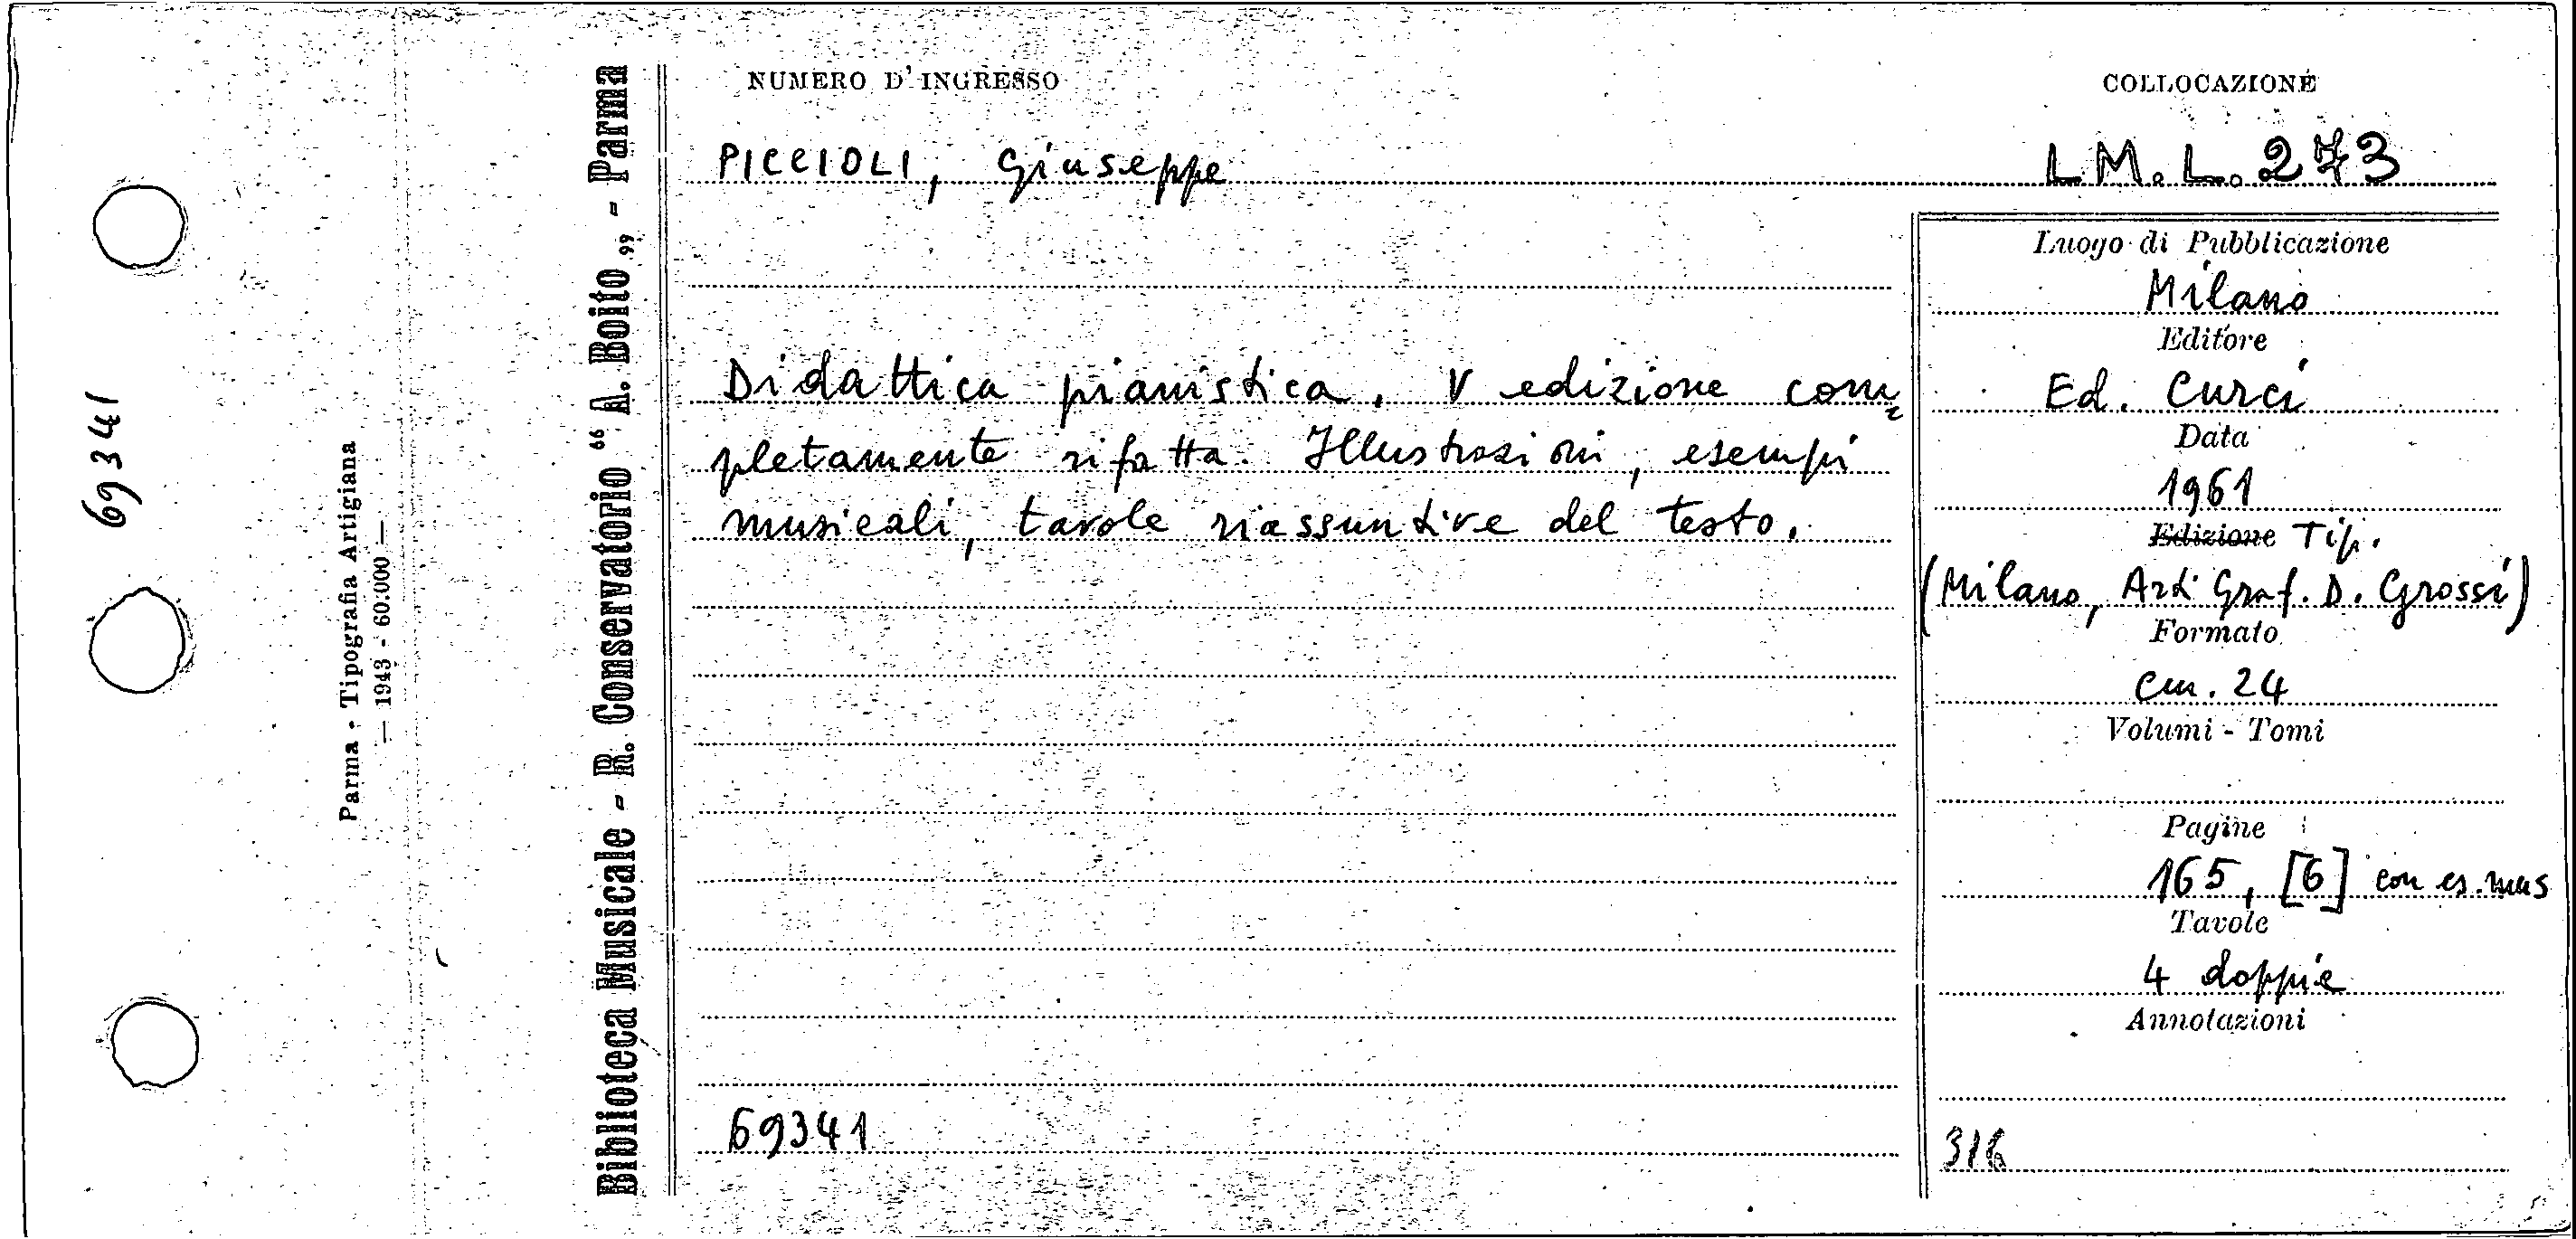 NUMERO D'INGRESSO
COLLOCAZIONE
PICCIOLI, Giuseppe
L.M.L.273
Didattica pianistica. V edizione com=
pletamente rifatta. Illustrazioni, esempi
musicali, tavole riassuntive del testo.
69341
Luogo di Pubblicazione
Milano
Editore
Ed. Curci
Data
1961
Edizione Tip.
(Milano, Arti Graf. D. Grossi)
Formato
cm. 24
Volumi - Tomi
Pagine
165, [6] con es. mus
Tavole
4 doppie
Annotazioni
Biblioteca Musicale - R. Conservatorio “ A. Boito „ - Parma
Parma - Tipografia Artigiana
— 1943 - 60.000 —
69341